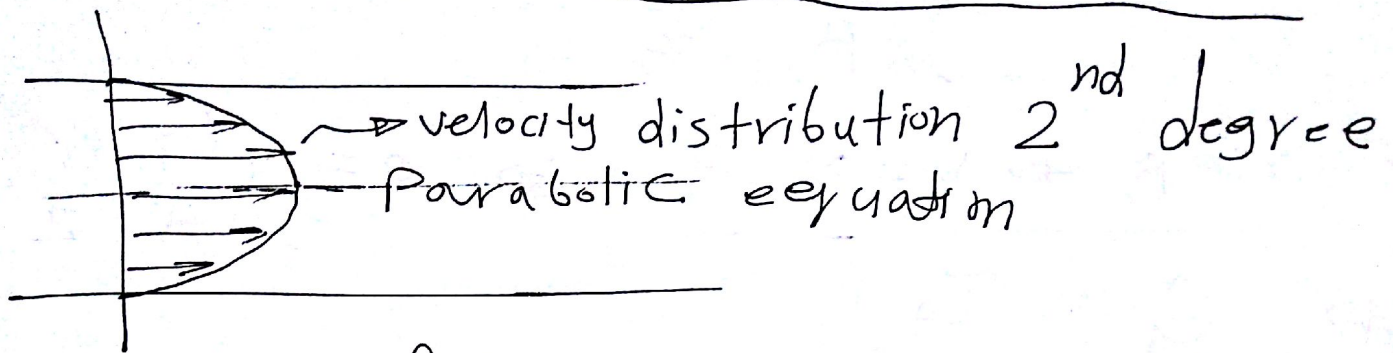 velocity distribution 2nd degree
Parabolic eequation